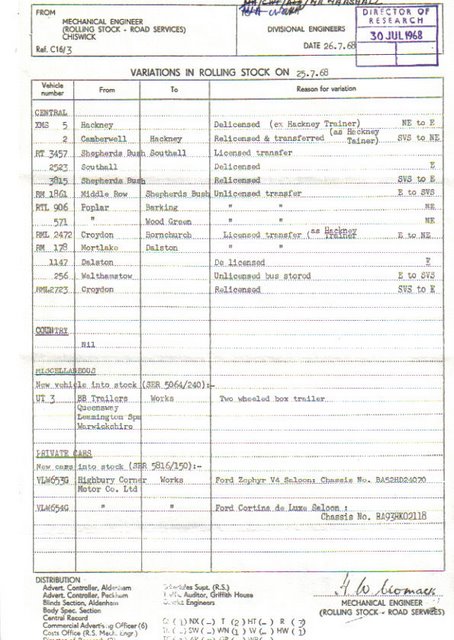 FROM
MECHANICAL ENGINEER
(ROLLING STOCK - ROAD SERVICES)
CHISWICK
Ref. C16/3
DIVISIONAL ENGINEERS
DATE 26.7.68
DIRECTOR OF
RESEARCH
30 JUL 1968
VARIATIONS IN ROLLING STOCK ON 25.7.68
Vehicle number From To Reason for variation
CENTRAL
XMS 5 Hackney Delicensed (ex Hackney Trainer) NE to E
2 Camberwell Hackney Relicensed & transferred (as Hackney Tainer) SVS to NE
RT 3457 Shepherds Bush Southall Licensed transfer
2523 Southall Delicensed E
3815 Shepherds Bush Relicensed SVS to E
RM 1861 Middle Row Shepherds Bush Unlicensed transfer E to SVS
RTL 906 Poplar Barking " " NE
571 " Wood Green " " NE
RML 2472 Croydon Hornchurch Licensed transfer (as Hackney Trainer E to NE
RM 178 Mortlake Dalston " "
1147 Dalston De licensed E
256 Walthamstow Unlicensed bus stored E to SVS
RML2723 Croydon Relicensed SVS to E
COUNTRY
Nil
MISCELLANEOUS
New vehicle into stock (SER 5064/240):-
UT 3 BB Trailers Works Two wheeled box trailer
Queensway
Leamington Spa
Warwickshire
PRIVATE CARS
New cars into stock (SER 5816/150):-
VLW653G Highbury Corner Works Ford Zephyr V4 Saloon: Chassis No. BA52HD24070
Motor Co. Ltd
VLW654G " " Ford Cortina de Luxe Saloon :
Chassis No. BA93HK02118
DISTRIBUTION
Advert. Controller, Aldenham
Advert. Controller, Peckham
Blinds Section, Aldenham
Body Spec. Section
Central Record
Commercial Advertising Officer (6)
Costs Officer (R.S. Mech. Engr)
Schedules Supt. (R.S.)
Auditor, Griffith House
Engineers
MECHANICAL ENGINEER
(ROLLING STOCK - ROAD SERVICES)